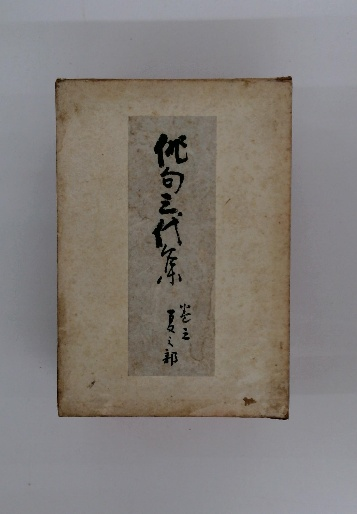 俳句三代集
巻三
夏之部